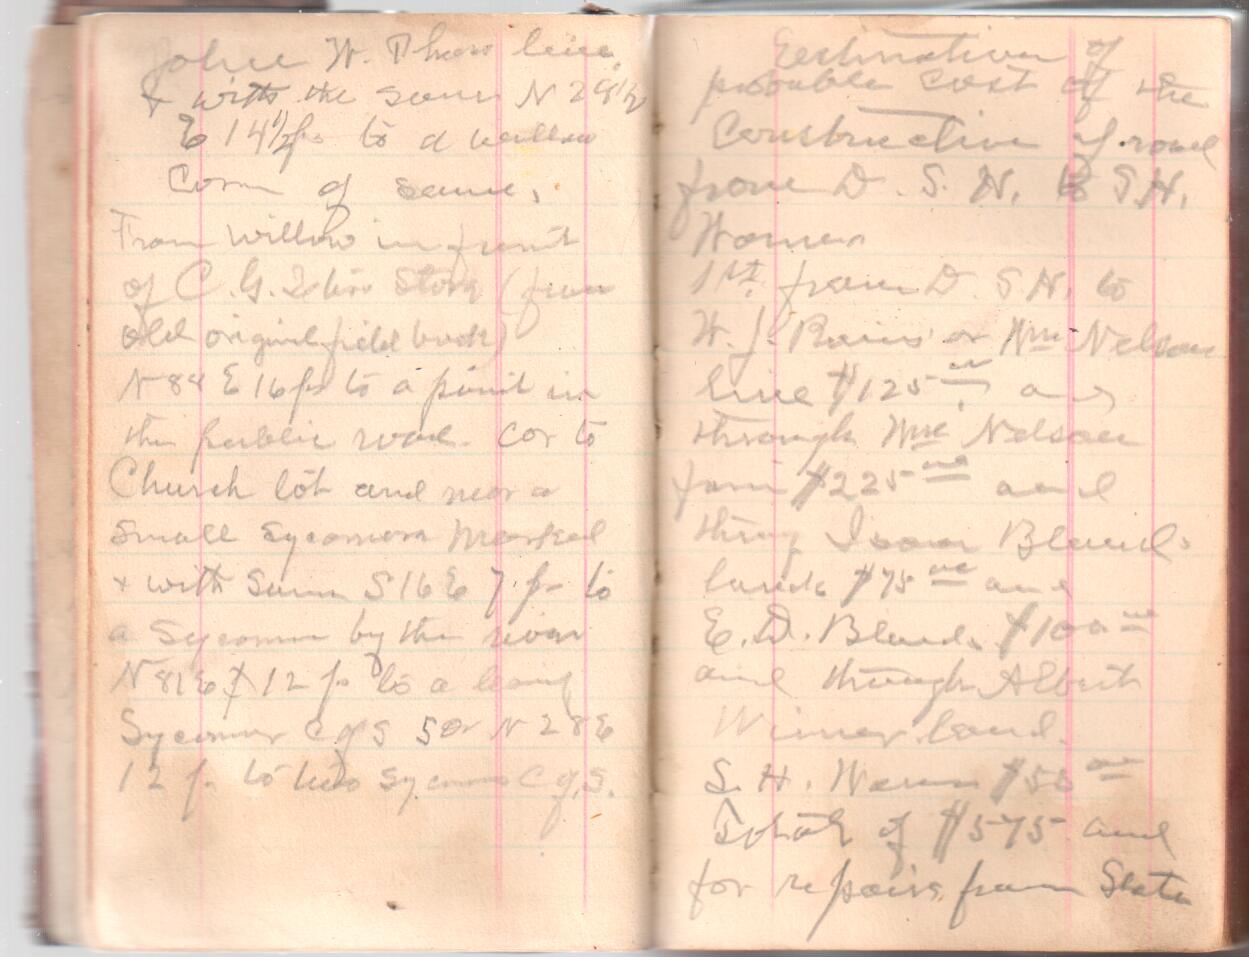 John W. Thars line
& with the same N 28 1/2
E 14 1/2 ps to a willow
Corn of same,
From willow in front
of C. G. Store (from
old original field book)
N 88 E 16 ps to a point in
the public road. cor to
Church lot and near a
small Sycamore Marked
& with same S 16 E 7 ps to
a Sycamore by the river
N 81 E 12 ps to a leang
Sycamore C g S 50 N 28 E
12 p. to two Sycamore C g, S.
Estimation of
probable cost of the
Construction of road
from D. S. H. to S. H.
Womer
1st. from D. S. H. to
W. J. Rains or Wm Nelson
line $125 and
through Wm Nelson
farm $225 and
throug Isaac Bland
lands $75 and
E. D. Bland. $100
and through Albert
land.
S. H. $50
Total of $575 and
for repairs from State